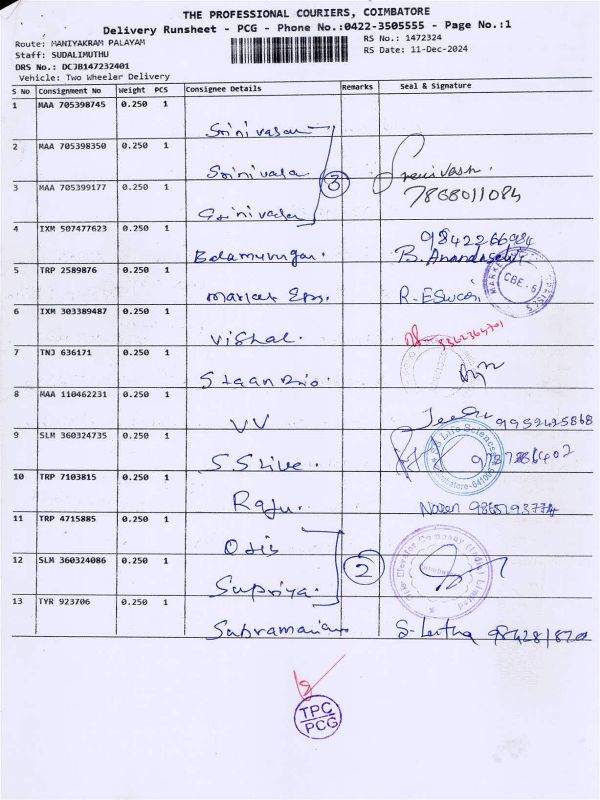 THE PROFESSIONAL COURIERS, COIMBATORE
Delivery Runsheet - PCG - Phone No.:0422-3505555 - Page No.:1
Route: MANIYAKRAM PALAYAM
RS No.: 1472324
Staff: SUDALIMUTHU
RS Date: 11-Dec-2024
DRS No.: DCJB147232401
Vehicle: Two Wheeler Delivery
S No Consignment No Weight PCS Consignee Details Remarks Seal & Signature
1 MAA 705398745 0.250 1
Srinivasan
2 MAA 705398350 0.250 1
Srinivasa
3
3 MAA 705399177 0.250 1
7868011084
Srinivasa
4 IXM 507477623 0.250 1
9842266984
Balamurugan. B. Anandaselvi
5 TRP 2589876 0.250 1
CBE-6
Market Eps. R. Eswari
6 IXM 303389487 0.250 1
Vishal.
7 TNJ 636171 0.250 1
Staan Bio.
8 MAA 110462231 0.250 1
VV Jeesu
9 SLM 360324735 0.250 1
SS Life Sciences
Coimbatore-641006
SS Live.
10 TRP 7103815 0.250 1
Raju. Naren
11 TRP 4715885 0.250 1
Otis
12 SLM 360324086 0.250 1
2
Otis Elevator Company (India) Limited
Supriya.
13 TYR 923706 0.250 1
Subramanian S. Leetha
TPC
PCG